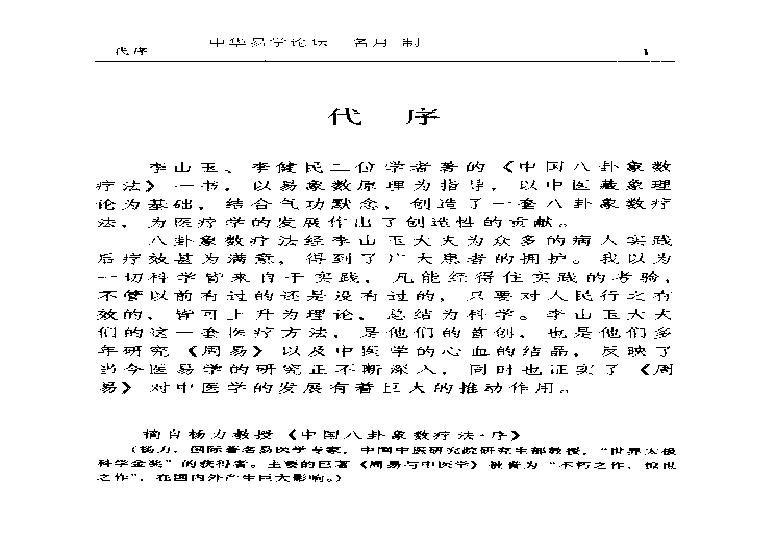 中华易学论坛 名月 制
代序 1
代 序
李山玉、李健民二位学者著的《中国八卦象数
疗法》一书，以易象数原理为指导，以中医藏象理
论为基础，结合气功默念，创造了一套八卦象数疗
法，为医疗学的发展作出了创造性的贡献。
八卦象数疗法经李山玉大夫为众多的病人实践
后疗效甚为满意，得到了广大患者的拥护。我以为
一切科学皆来自于实践，凡能经得住实践的考验，
不管以前有过的还是没有过的，只要对人民行之有
效的，皆可上升为理论，总结为科学。李山玉大夫
们的这一套医疗方法，是他们的首创，也是他们多
年研究《周易》以及中医学的心血的结晶，反映了
当今医易学的研究正不断深入，同时也证实了《周
易》对中医学的发展有着巨大的推动作用。
摘自杨力教授《中国八卦象数疗法·序》
（杨力，国际著名易医学专家，中国中医研究院研究生部教授，“世界太极
科学金奖”的获得者。主要的巨著《周易与中医学》被誉为“不朽之作，惊世
之作”，在国内外产生巨大影响。）